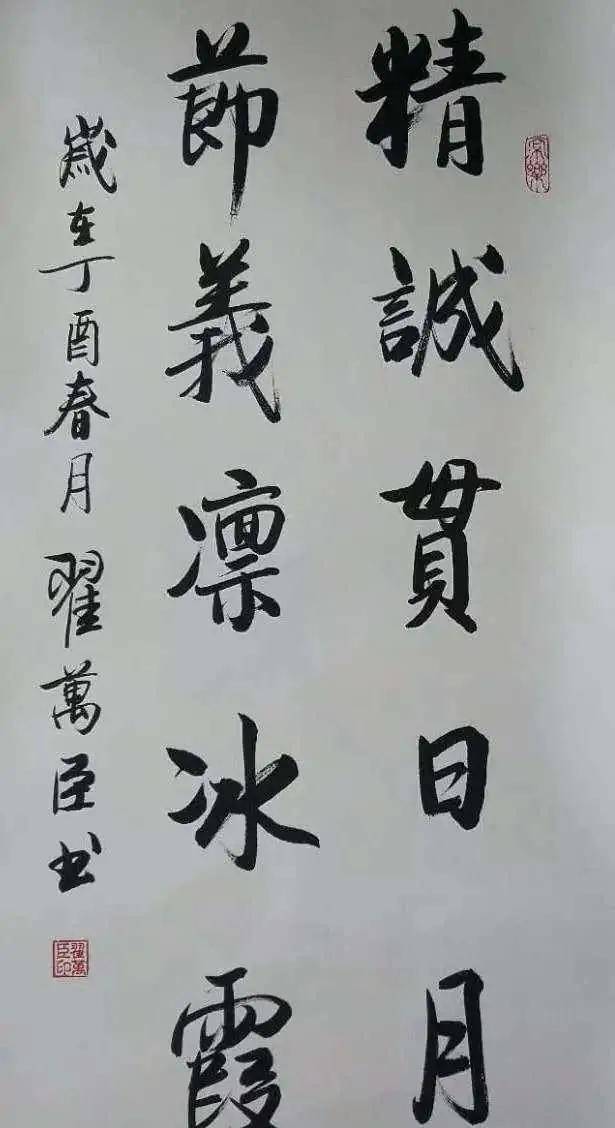 精誠貫日月
節義凛冰霞
歲在丁酉春月翟萬臣书
翟萬臣印